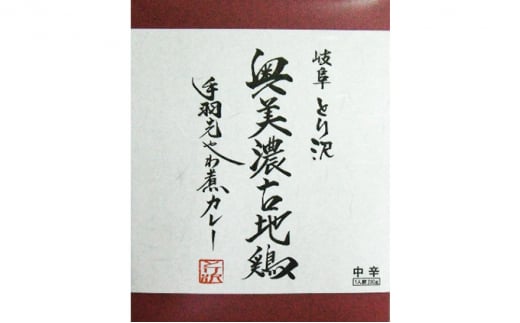 岐阜 とり沢
奥美濃古地鶏
手羽先やわ煮カレー
中辛
1人前200g